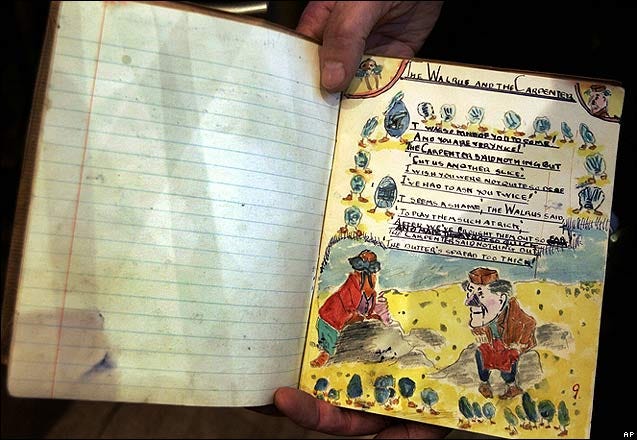 THE WALRUS AND THE CARPENTER
T WAS SO KIND OF YOU TO COME!
AND YOU ARE VERY NICE!'
THE CARPENTER SAID NOTHING BUT
'CUT US ANOTHER SLICE.
I WISH YOU WERE NOT QUITE SO DEAF
I'VE HAD TO ASK YOU TWICE!'
'T SEEMS A SHAME', THE WALRUS SAID,
'TO PLAY THEM SUCH A TRICK,
WE'VE BROUGHT THEM OUT SO FAR
THE CARPENTER SAID NOTHING BUT
'THE BUTTER'S SPREAD TOO THICK!'
9.
AP